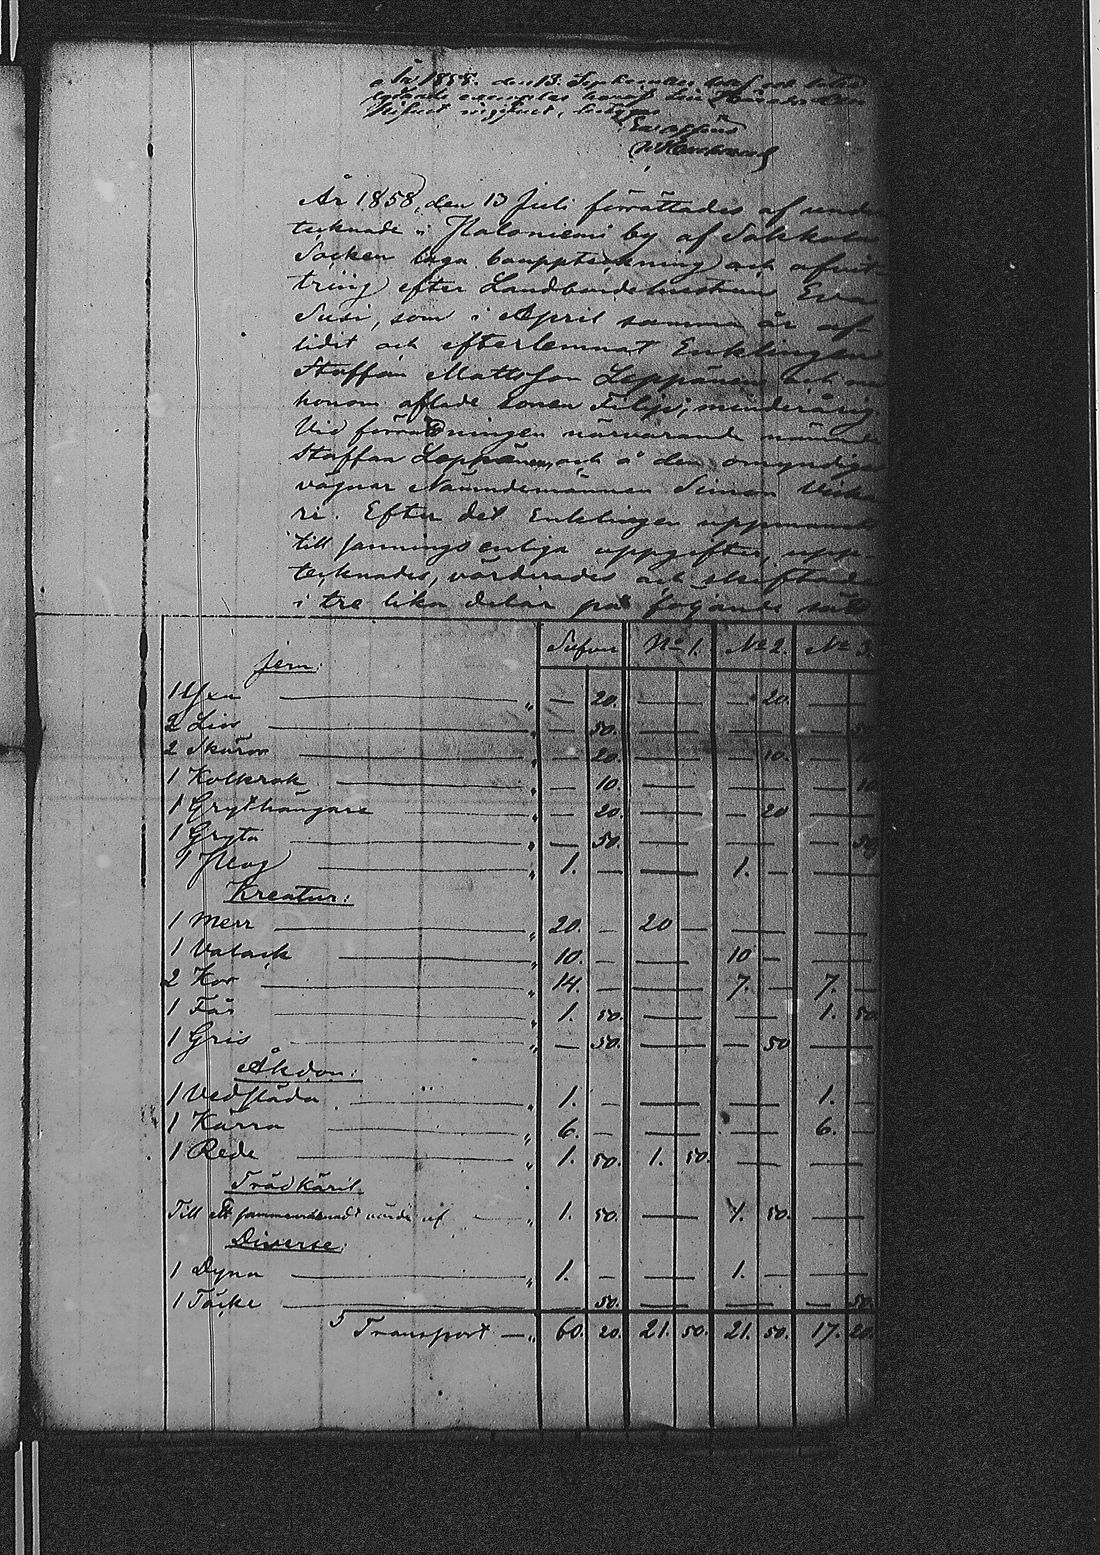 År 1858. den 13. September
År 1858, den 13 Juli förrättades af under
tecknade i Haloniemi by af Sakkola
Socken laga bouppteckning och afvit
tring efter Landbondehustrun Eva
Susi, som i April samma år af-
lidit och efterlemnat Enklingen
Staffan Mattsson Leppänen och
honom aflade sonen Filip, minderårig.
Vid förrättningen närvarande nämnde
Staffan Leppänen, och å den omyndiges
vägnar Nämndemannen Simon
ri. Efter det Enklingen uppmanats
till sanningsenliga uppgifter, upp-
tecknades, värderades och skiftades
i tre lika delar på följande sätt
Jern: Silfver No 1. No 2. No 3.
1 Yxa — " — 20. — — 20. —
2 Liar — " — 50. — — 5
2 Skäror — " — 20. — — 10. — 10
1 Kolkrok — " — 10. — — — 10
1 Grythängare — " — 20. — — 20 —
1 Gryta — " — 50. — — — 50
1 Plog — " 1. — — 1. — —
Kreatur:
1 Merr — " 20. — 20 — — —
1 Valack — " 10. — — 10 — —
2 Kor — " 14. — — 7. — 7. —
1 Får — " 1. 50. — — 1. 50
1 Gris — " — 50. — — 50 —
Åkdon:
1 Vedsläda — " 1. — — — 1. —
1 Kärra — " 6. — — — 6. —
1 Rede — " 1. 50. 1. 50. — —
Trädkäril
Till ett sammanräknadt värde af — " 1. 50. — 1. 50. —
Diverse:
1 Dyna — " 1. — — 1. — —
1 Täcke — " — 50. — — — 50.
Transport — " 60. 20. 21. 50. 21. 50. 17. 20.